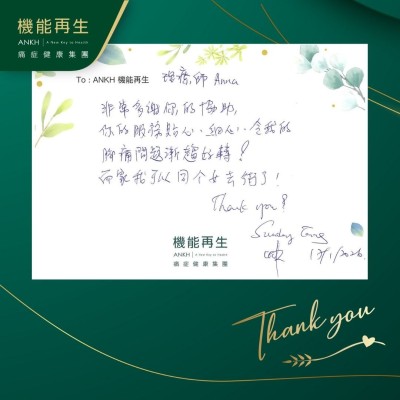 機能再生
ANKH | A New Key to Health
痛症健康集團
To : ANKH 機能再生 理療師 Anna
非常多謝你的協助,
你的服務貼心、細心、令我的
腳痛問題漸趨好轉!
而家我可以同个女去街了!
Thank you!
Sunday
13/1/2026
機能再生
ANKH | A New Key to Health
痛症健康集團
Thank you